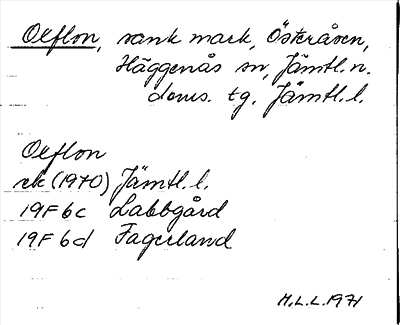 Oxflon, sank mark, Österåsen,
Häggenås sn, Jämtl. n.
doms. tg. Jämtl. l.
Oxflon
ek (1970) Jämtl. l.
19F 6c Labbgård
19F 6d Fagerland
M.L.L. 1971